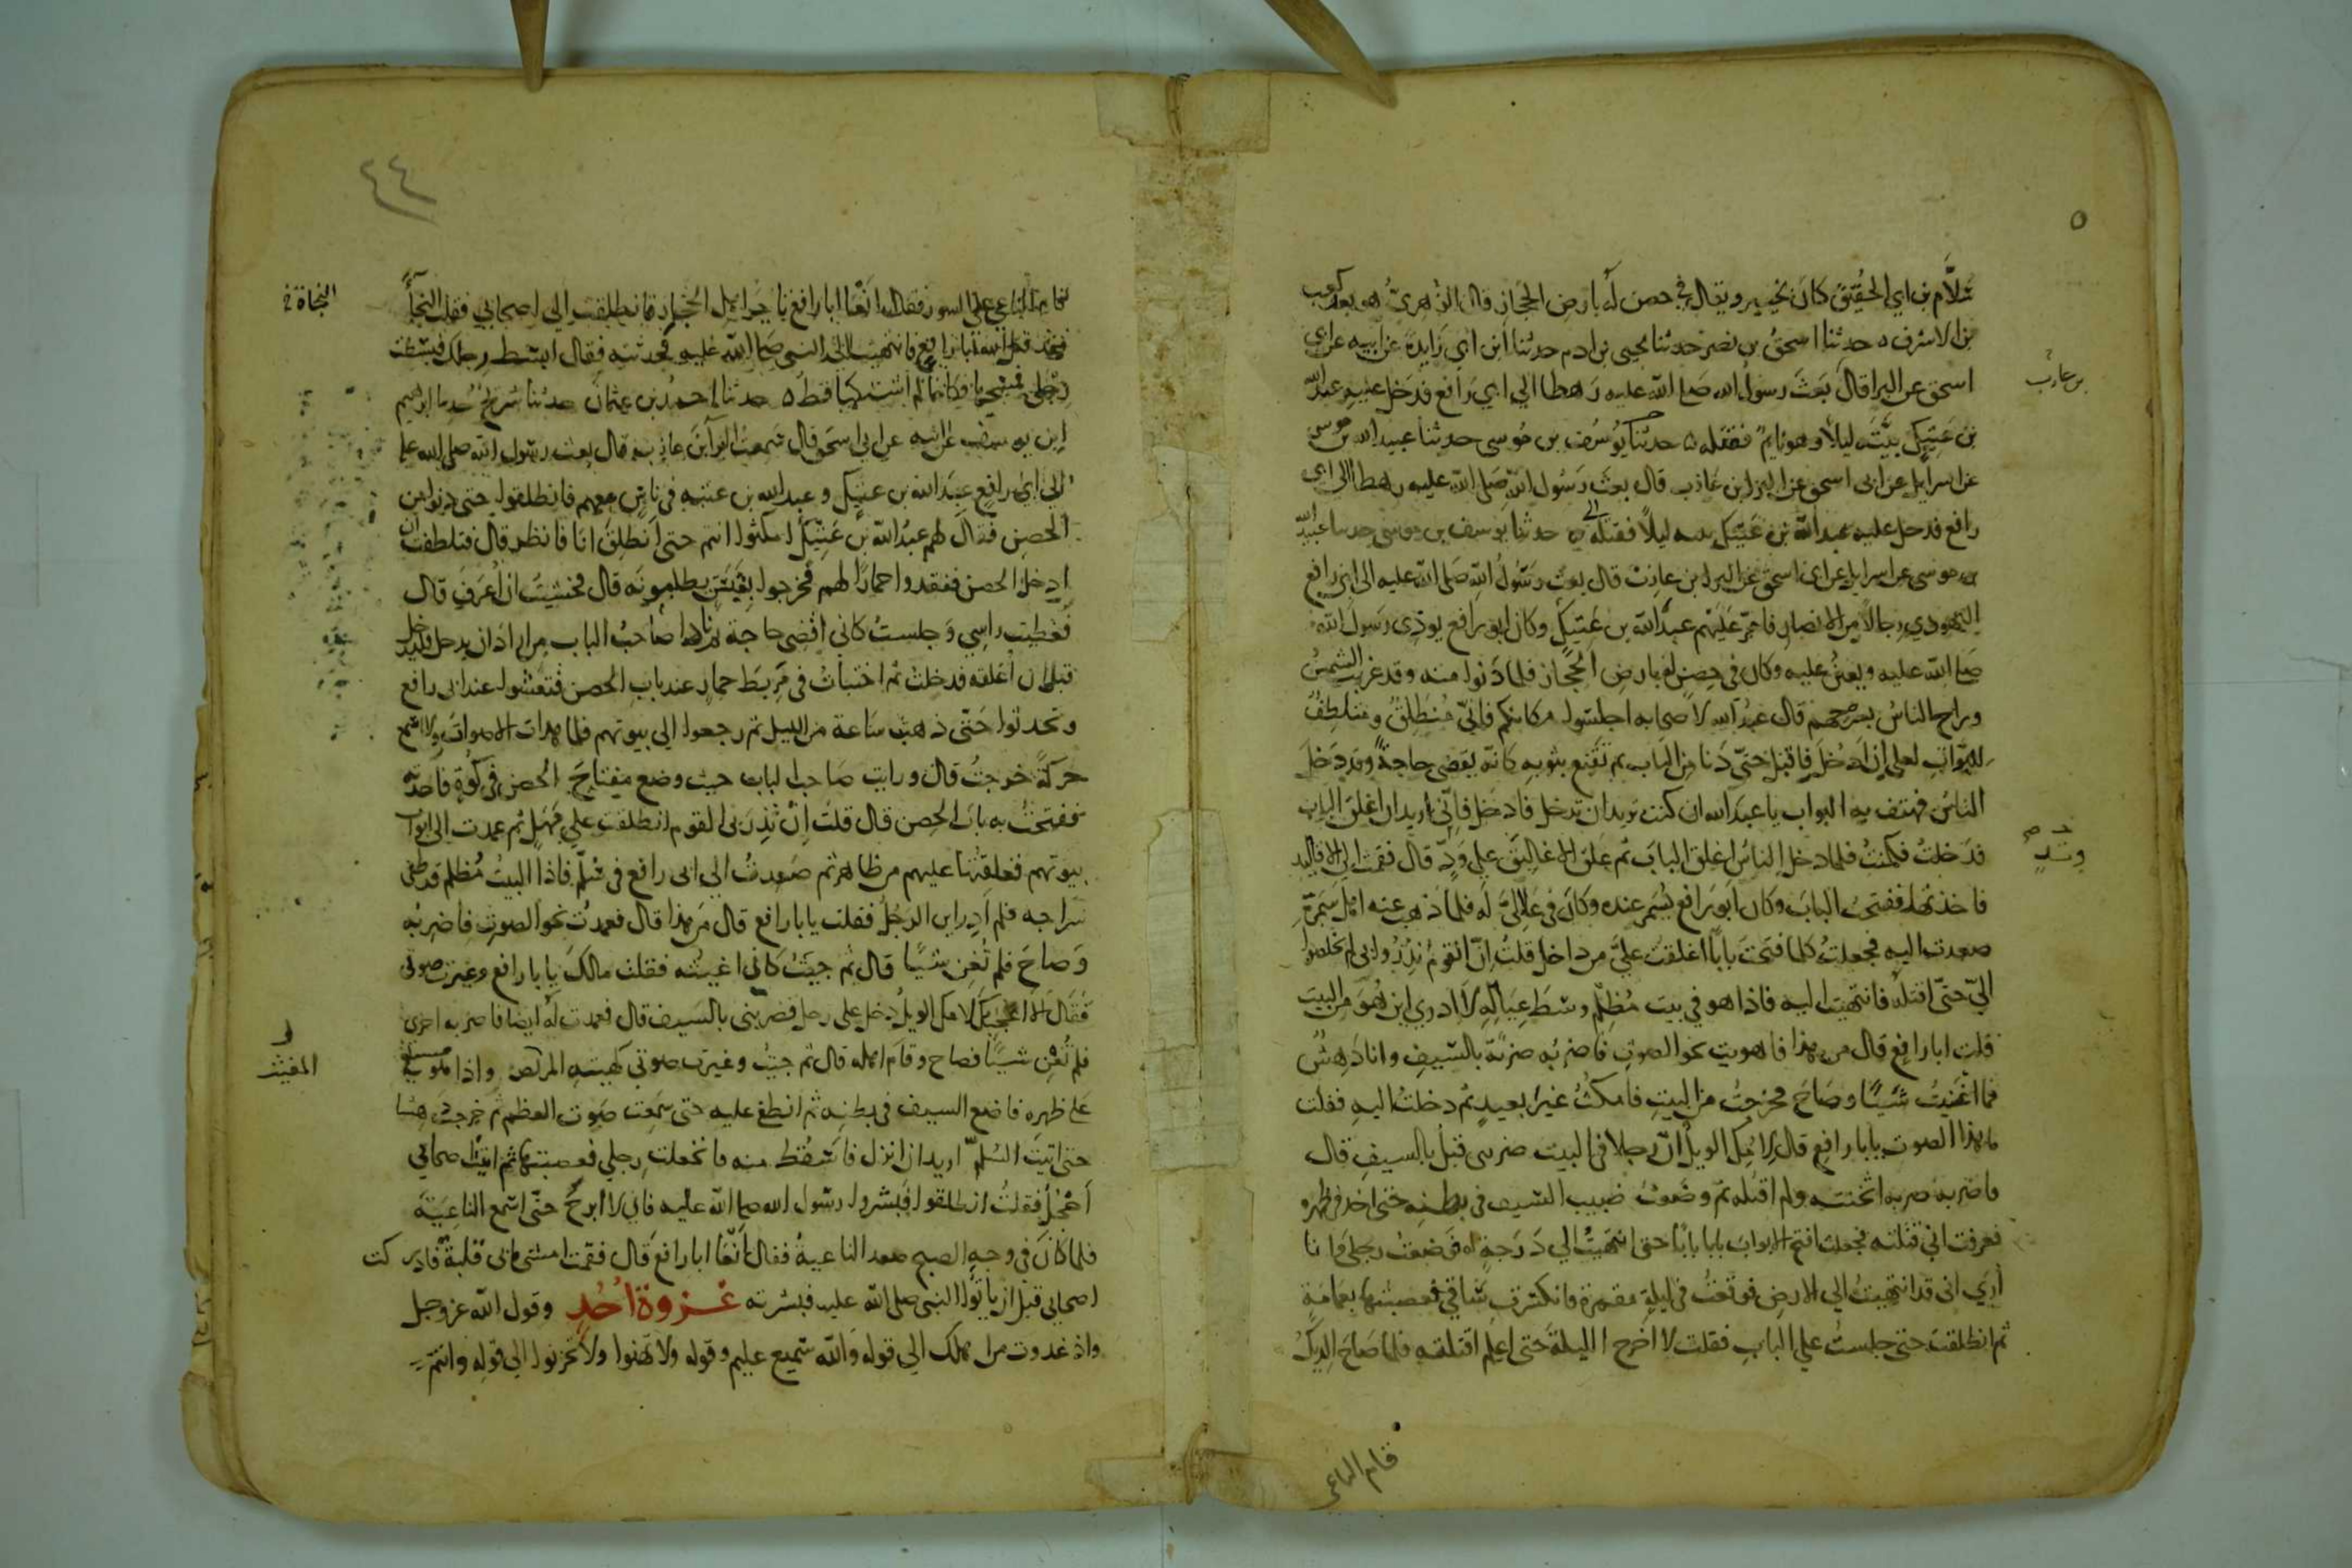 سَلاَّم بن ابي الحُقَيْق كانَ بخيبر ويقال في حصن لَه بارض الحجاز قال الزهريّ هو بعد كعب
بن الاشرف ه حدثنا اسحقُ بن نصر حدثنا يحيى بن ادم حدثنا ابن ابي زَايدةَ عن ابيه عن ابي
اسحق عن البرا قال بَعَثَ رسولُ الله صلى الله عليه رَهطا الي ابي رَافع فدَخل عليه عبدُ الله
بن عازب
بن عَتِيكٍ بيْتَه ليلاً وهو نايمٌ فقتله ه حدثنا يُوسُف بن مُوسى حدثنا عبيد الله بن موسى
عن اسرايل عن ابى اسحق عن البرا بن عَازب قال بعث رَسُول الله صَلى الله عليه رهطا الى ابي
رافع فدخل عليه عبد الله بن عَتيك بيته ليلاً فقتله ه حدثنا يوسف بن موسى حدثنا عبيد الله
بن موسى عن اسرايل عن ابى اسحق عن البرا بن عازب قال بعث رَسُولُ الله صَلى الله عليه الى ابى رافع
اليهودي رِجالاً من الانصار فامّر عَلَيْهم عبدَ الله بن عَتِيكٍ وكان ابو رافع يوذى رَسولَ الله
صَلى الله عليه ويعينُ عليه وكان في حِصنٍ له بارضِ الحجَاز فلما دَنوا منه وقد غربت الشمسُ
وراح الناسُ بسرحهم قال عبدُ الله لاصحابه اجلسوا مكانكم فانّي مُنطَلِقٌ ومتلطِفٌ
للبوّاب لعلي ان ادخلَ فاقبل حتّى دَنا من الباب ثم تقَنع بثوبه كانّه يقضي حاجةً وقد دَخلَ
الناسُ فهتف به البواب يا عبدَ الله ان كنت تريد ان تدخل فادخل فانّي اريد ان اغلق الباب
فدَخلتُ فكمنتُ فلما دخل الناسُ اغلق البابَ ثم علق الاغاليقَ علي وَدٍّ قال فقمت الي الاقاليد
وتد
فاخذتها ففتحتُ البابَ وكان ابو رافع يُسْمَر عنده وكانَ في عَلاليَّ لَه فلما ذهب عنه اهل سَمَرِهِ
صعدت اليه فجعلتُ كلما فتحت باباً اغلقت عليَّ من داخل قلتُ ان القومُ نَذِرُوا بى لم يخلصوا
اليّ حتّى اقتلَه فانتهيت اليه فاذا هو في بيت مُظلِمٍ وسْطَ عِيَالِهِ لا ادري اين هُوَ من البيت
قلت ابا رافع قال من هذا فاهويت نحو الصوتِ فاضربُه ضربَةً بالسيفِ وانا دَهِشٌ
فما اغنيتُ شَيْئًا وصَاحَ فخرجتُ من البيتِ فامكثُ غيرَ بعيدٍ ثم دخلتُ اليهِ فقلت
ما هذا الصوت يابا رافع قال لامِّكَ الويلُ انّ رجلا في البيت ضربنى قبلُ بالسيفِ قال
فاضربه ضربه اثخنته ولم اقتله ثم وضعتُ ضبيب السيف في بطنِه حتى اخذ في ظهره
فعرفت اني قتلته فجعلت افتح الابوابَ بابا بابًا حتى انتهيتُ الي دَرَجةٍ له فوضعتُ رجلي وانا
أُرَي انى قد انتهيتُ الي الارضِ فوقعتُ في ليلةٍ مقمرة فانكسَرت سَاقي فعصبتها بعمَامةٍ
ثم انطلقت حتى جلستُ علي البابِ فقلت لا اخرج الليلةَ حتى اعلم اقتلته فلما صَاحَ الديكُ
قام الناعي
٤٤
قام الناعي على السور فقال انْعَا ابا رافعٍ تاجرَ اهل الحجاز فانطلقت الي اصحابي فقلت النجاءَ
النجاة خ
فقد قتل الله ابا رافعٍ فانتهيت الي النبي صَلى الله عَليه فحدثته فقال ابسُط رجلك فبسَطت
رجلي فمسَحها فكانما لم اشتكها قط ه حدثنا احمدُ بن عثمان حدثنا شريح حدثنا ابرهيم
ابن يوسف عن ابيه عن ابي اسحق قال سمعتُ البرآ بن عازب قال بعث رسُول الله صلى الله عليه
الى ابي رافعٍ عبدَ الله بن عتيك وعبد الله بن عتبه في ناسٍ معهم فانطلقوا حتى دنوا من
الحصنِ فقال لهم عبدُ الله بن عَتِيكٍ امكثوا انتم حتى انطلقَ انا فانظر قال فتلطفت ان
ادخل الحصن ففقدوا حمارًا لهم فخرجوا بِقَبَسٍ يطلبونَه قال فخشيتُ ان أُعرَفَ قال
فغطيت راسِي وجلستُ كاني اقضى حاجة ثم نادا صاحبُ الباب من اراد ان يدخل فليدخل
قبل ان أغلقه فدخلتُ ثم اختبأتُ في مَربَط حمارٍ عند باب الحصن فتعشوا عند ابى رافع
وتحدثوا حَتّى ذهبت سَاعة من الليل ثم رجعوا الى بيوتهم فلما هدات الاصواتُ ولا اسمع
حركةً خرجتُ قال ورايت صَاحبَ الباب حيث وضع مِفتاحَ الحصن في كُوّة فاخذته
ففتحتُ به بابَ الحصن قال قلت إنْ نَذِرَ بي القوم انطلقت علي مَهَلٍ ثم عمدت الى ابواب
بيوتهم فغلقتها عليهم من ظاهر ثم صَعدتُ الي ابى رافع في سُلَّمٍ فاذا البيتُ مُظلم قد طفى
سراجه فلم ادرِ اين الرجلُ فقلت يابا رافع قال مَن هذا قال فعمدتُ نحو الصوتِ فاضربُه
وَصاحَ فلم تُغنِ شَيًّا قال ثم جيتُ كاني اغيثه فقلت مالكَ يابا رافع وغيرت صوتى
فقال الا اعجِبكَ لامّك الويلُ دخل على رجل فضربنى بالسيف قال فعمدت لَه ايضا فاضربه اخرى
فلم تُغْنِ شيًا فصاح وقام اهله قال ثم جيتُ وغيرت صوتي كهيئة المغيث واذا هو مستلقٍ
المغيث
عَلى ظهره فاضع السيف في بطنه ثم انطغ عليه حتى سَمعت صَوت العظم ثم خرجت دَهشا
حتى اتيتَ السُلمّ اريد ان انزل فاسقُط منه فانخعلت رجلي فعصبتها ثم اتيت اصحابي
أَحْجُلُ فقلتُ انطلقوا فبشروا رسُول الله صلى الله عليه فاني لا ابرحُ حتّى اسمع الناعِيَةَ
فلما كانَ في وجهِ الصبح صعد الناعيةُ فقال انْعَا ابا رافعٍ قال فقمت امشى مابى قلَبةٌ فادركت
اصحابي قبل ان ياتُوا النبى صلى الله عليه فبشرته غزوة اُحُدٍ وقول الله عز وجل
واذ غدوت من اهلك الي قوله والله سَميع عليم وقوله ولا تهَنوا ولا تحزنوا الى قوله وانتم